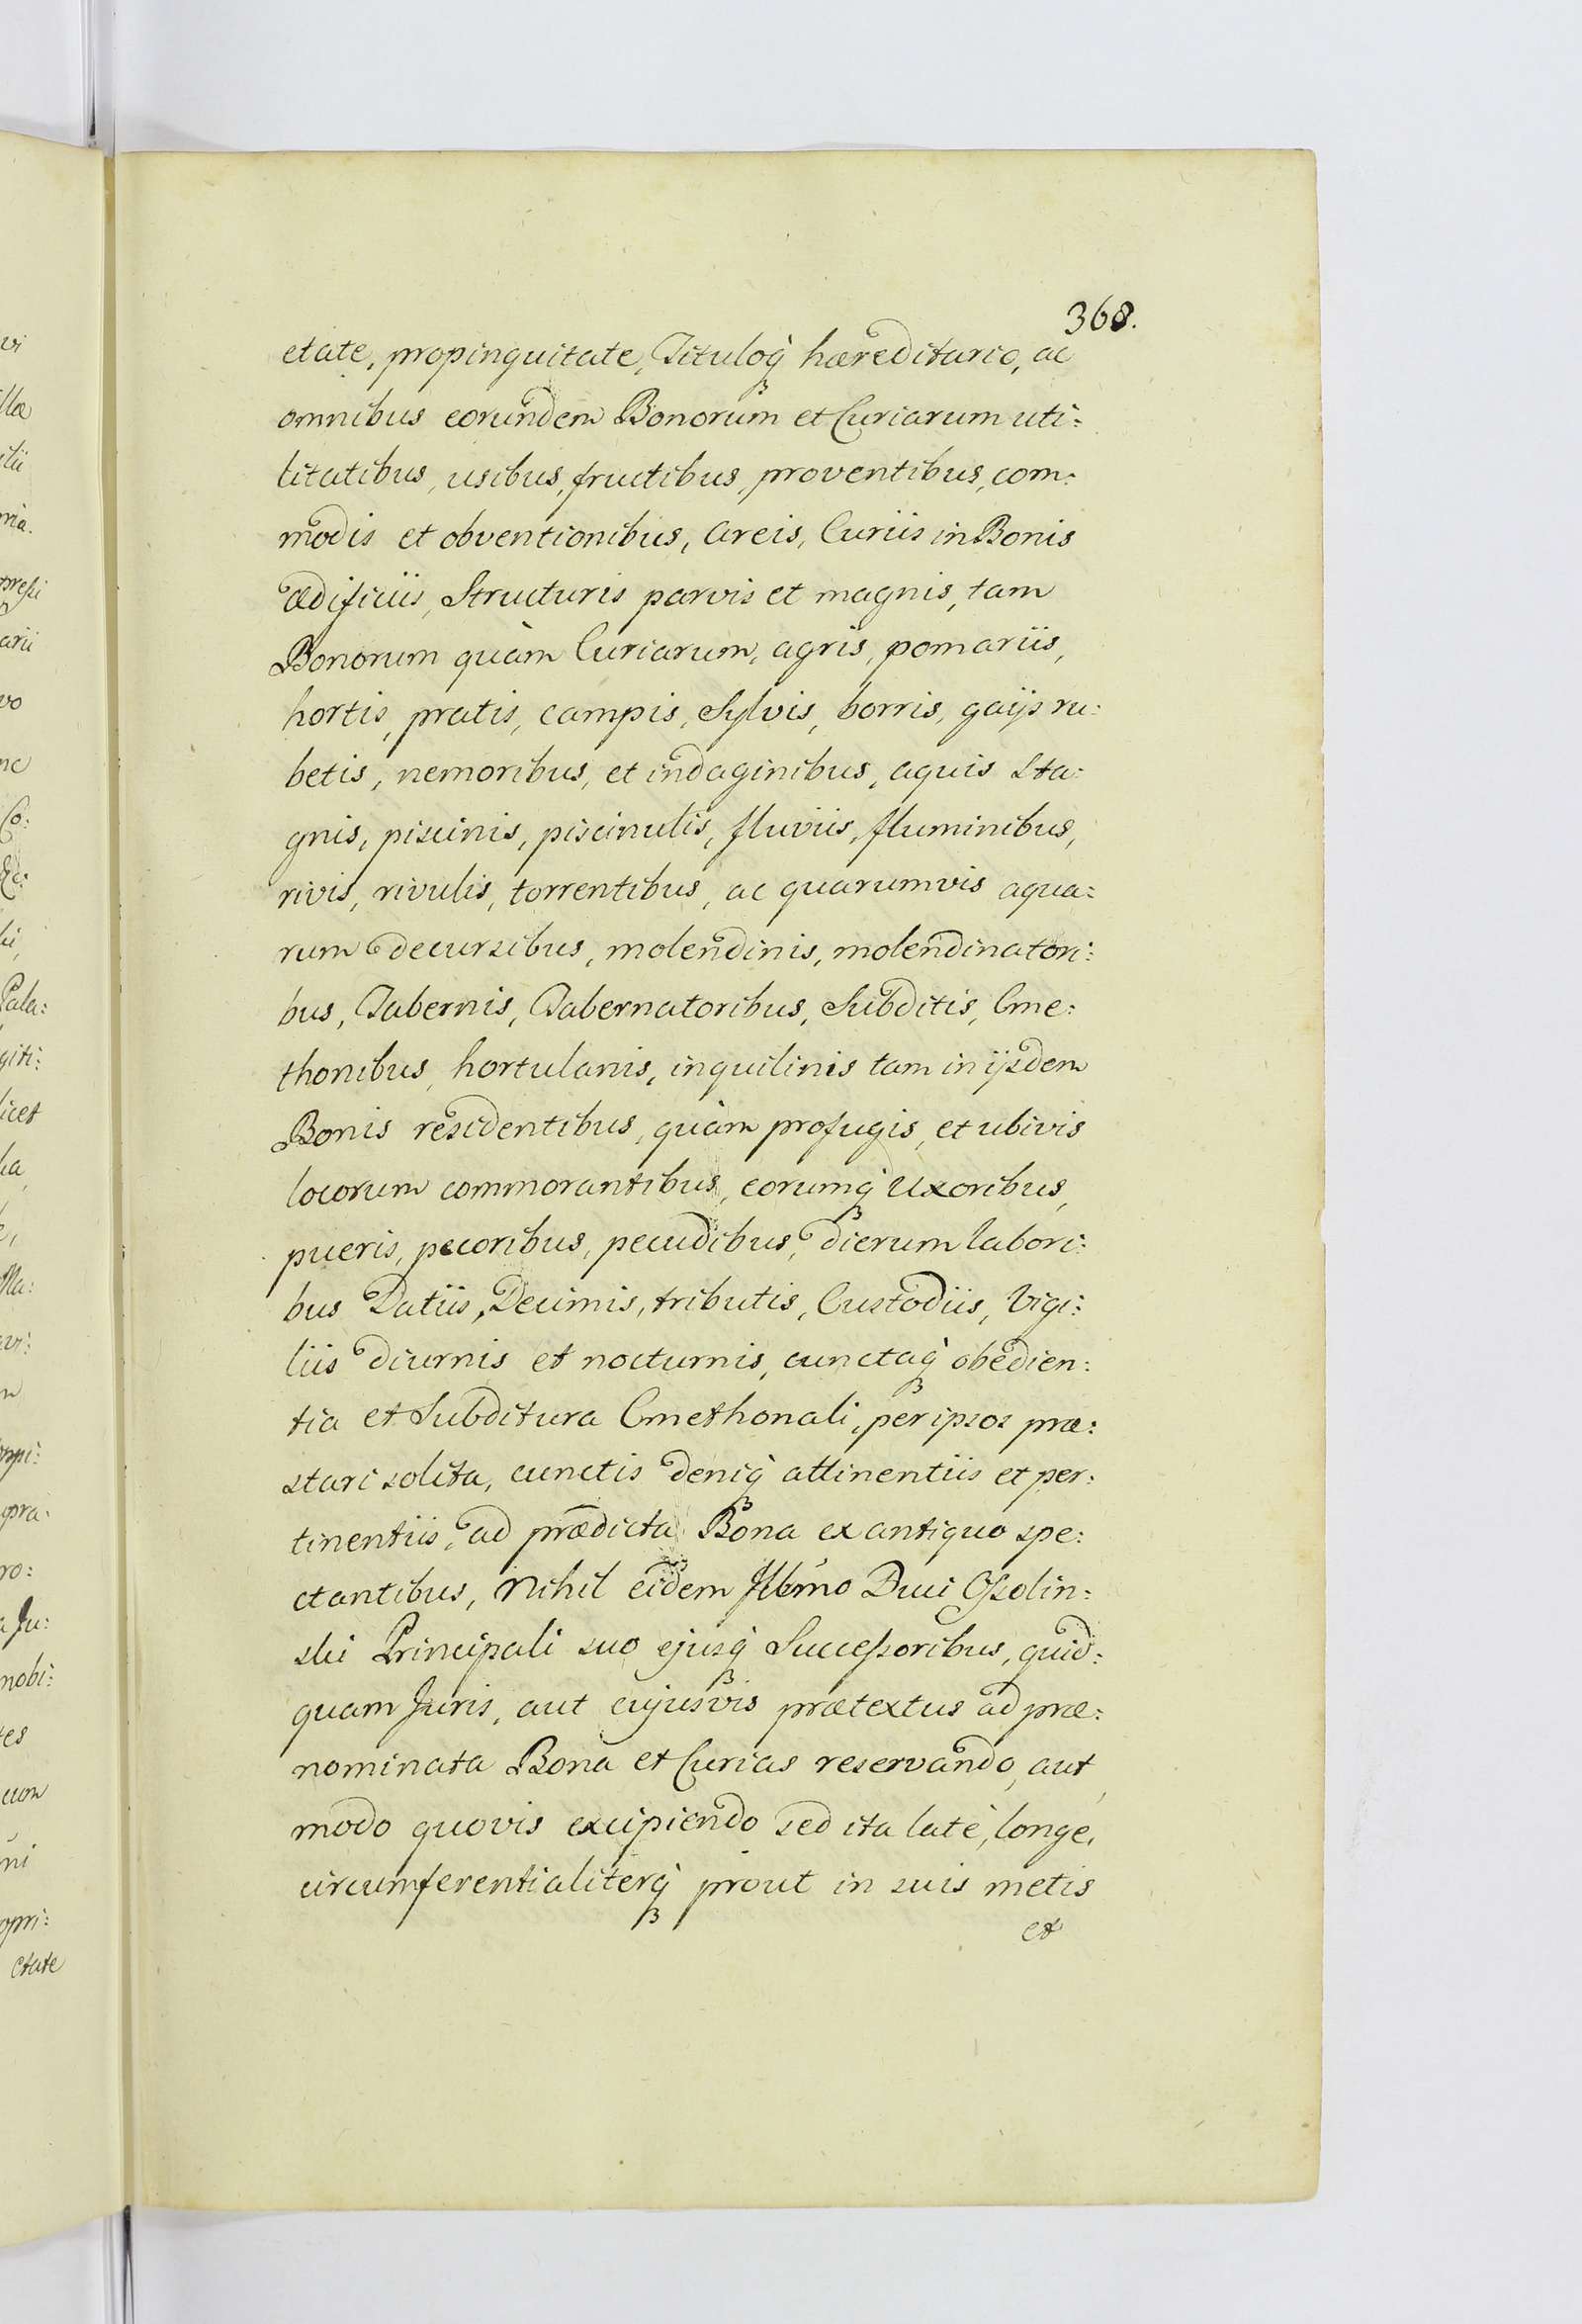 368.
etate, propinquitate, Tituloq₃ hæreditario, ac
omnibus eorundem Bonorum et Curiarum uti:
litatibus, usibus, fructibus, proventibus, com:
modis et obventionibus, areis, Curiis in Bonis
ædificiis, Structuris parvis et magnis, tam
Bonorum quàm Curiarum, agris, pomariis,
hortis, pratis, campis, Sylvis, borris, gaijs ru:
betis, nemoribus, et indaginibus, aquis sta:
gnis, piscinis, piscinulis, fluviis, fluminibus,
rivis, rivulis, torrentibus, ac quarumvis aqua:
rum decursibus, molendinis, molendinatori:
bus, Tabernis, Tabernatoribus, Subditis, Cme:
thonibus, hortulanis, inquilinis tam in ijsdem
Bonis residentibus, quàm profugis, et ubivis
locorum commorantibus, eorumq₃ Uxoribus,
pueris, pecoribus, pecudibus, dierum labori:
bus Datiis, Decimis, tributis, Custodiis, Vigi:
liis diurnis et nocturnis, cunctaq₃ obedien:
tia et Subditura Cmethonali, per ipsos præ:
stari solita, cunctis deniq₃ attinentiis et per:
tinentiis, ad prædicta Bona ex antiquo spe:
ctantibus, Nihil eidem Illmo Duci Ossolin:
ski Principali suo ejusq₃ Successoribus, quid:
quam Juris, aut cujusvis prætextus ad præ:
nominata Bona et Curias reservando, aut
modo quovis excipiendo sed ita latè, longe,
circumferentialiterq₃ prout in suis metis
et
vi
illa
ilii
ria.
pressi
arii
vo
nc
Co:
Pala:
giti:
licet
Ma:
pra:
ro:
a Ju:
nobi:
tes
cum
ni
opri:
etate